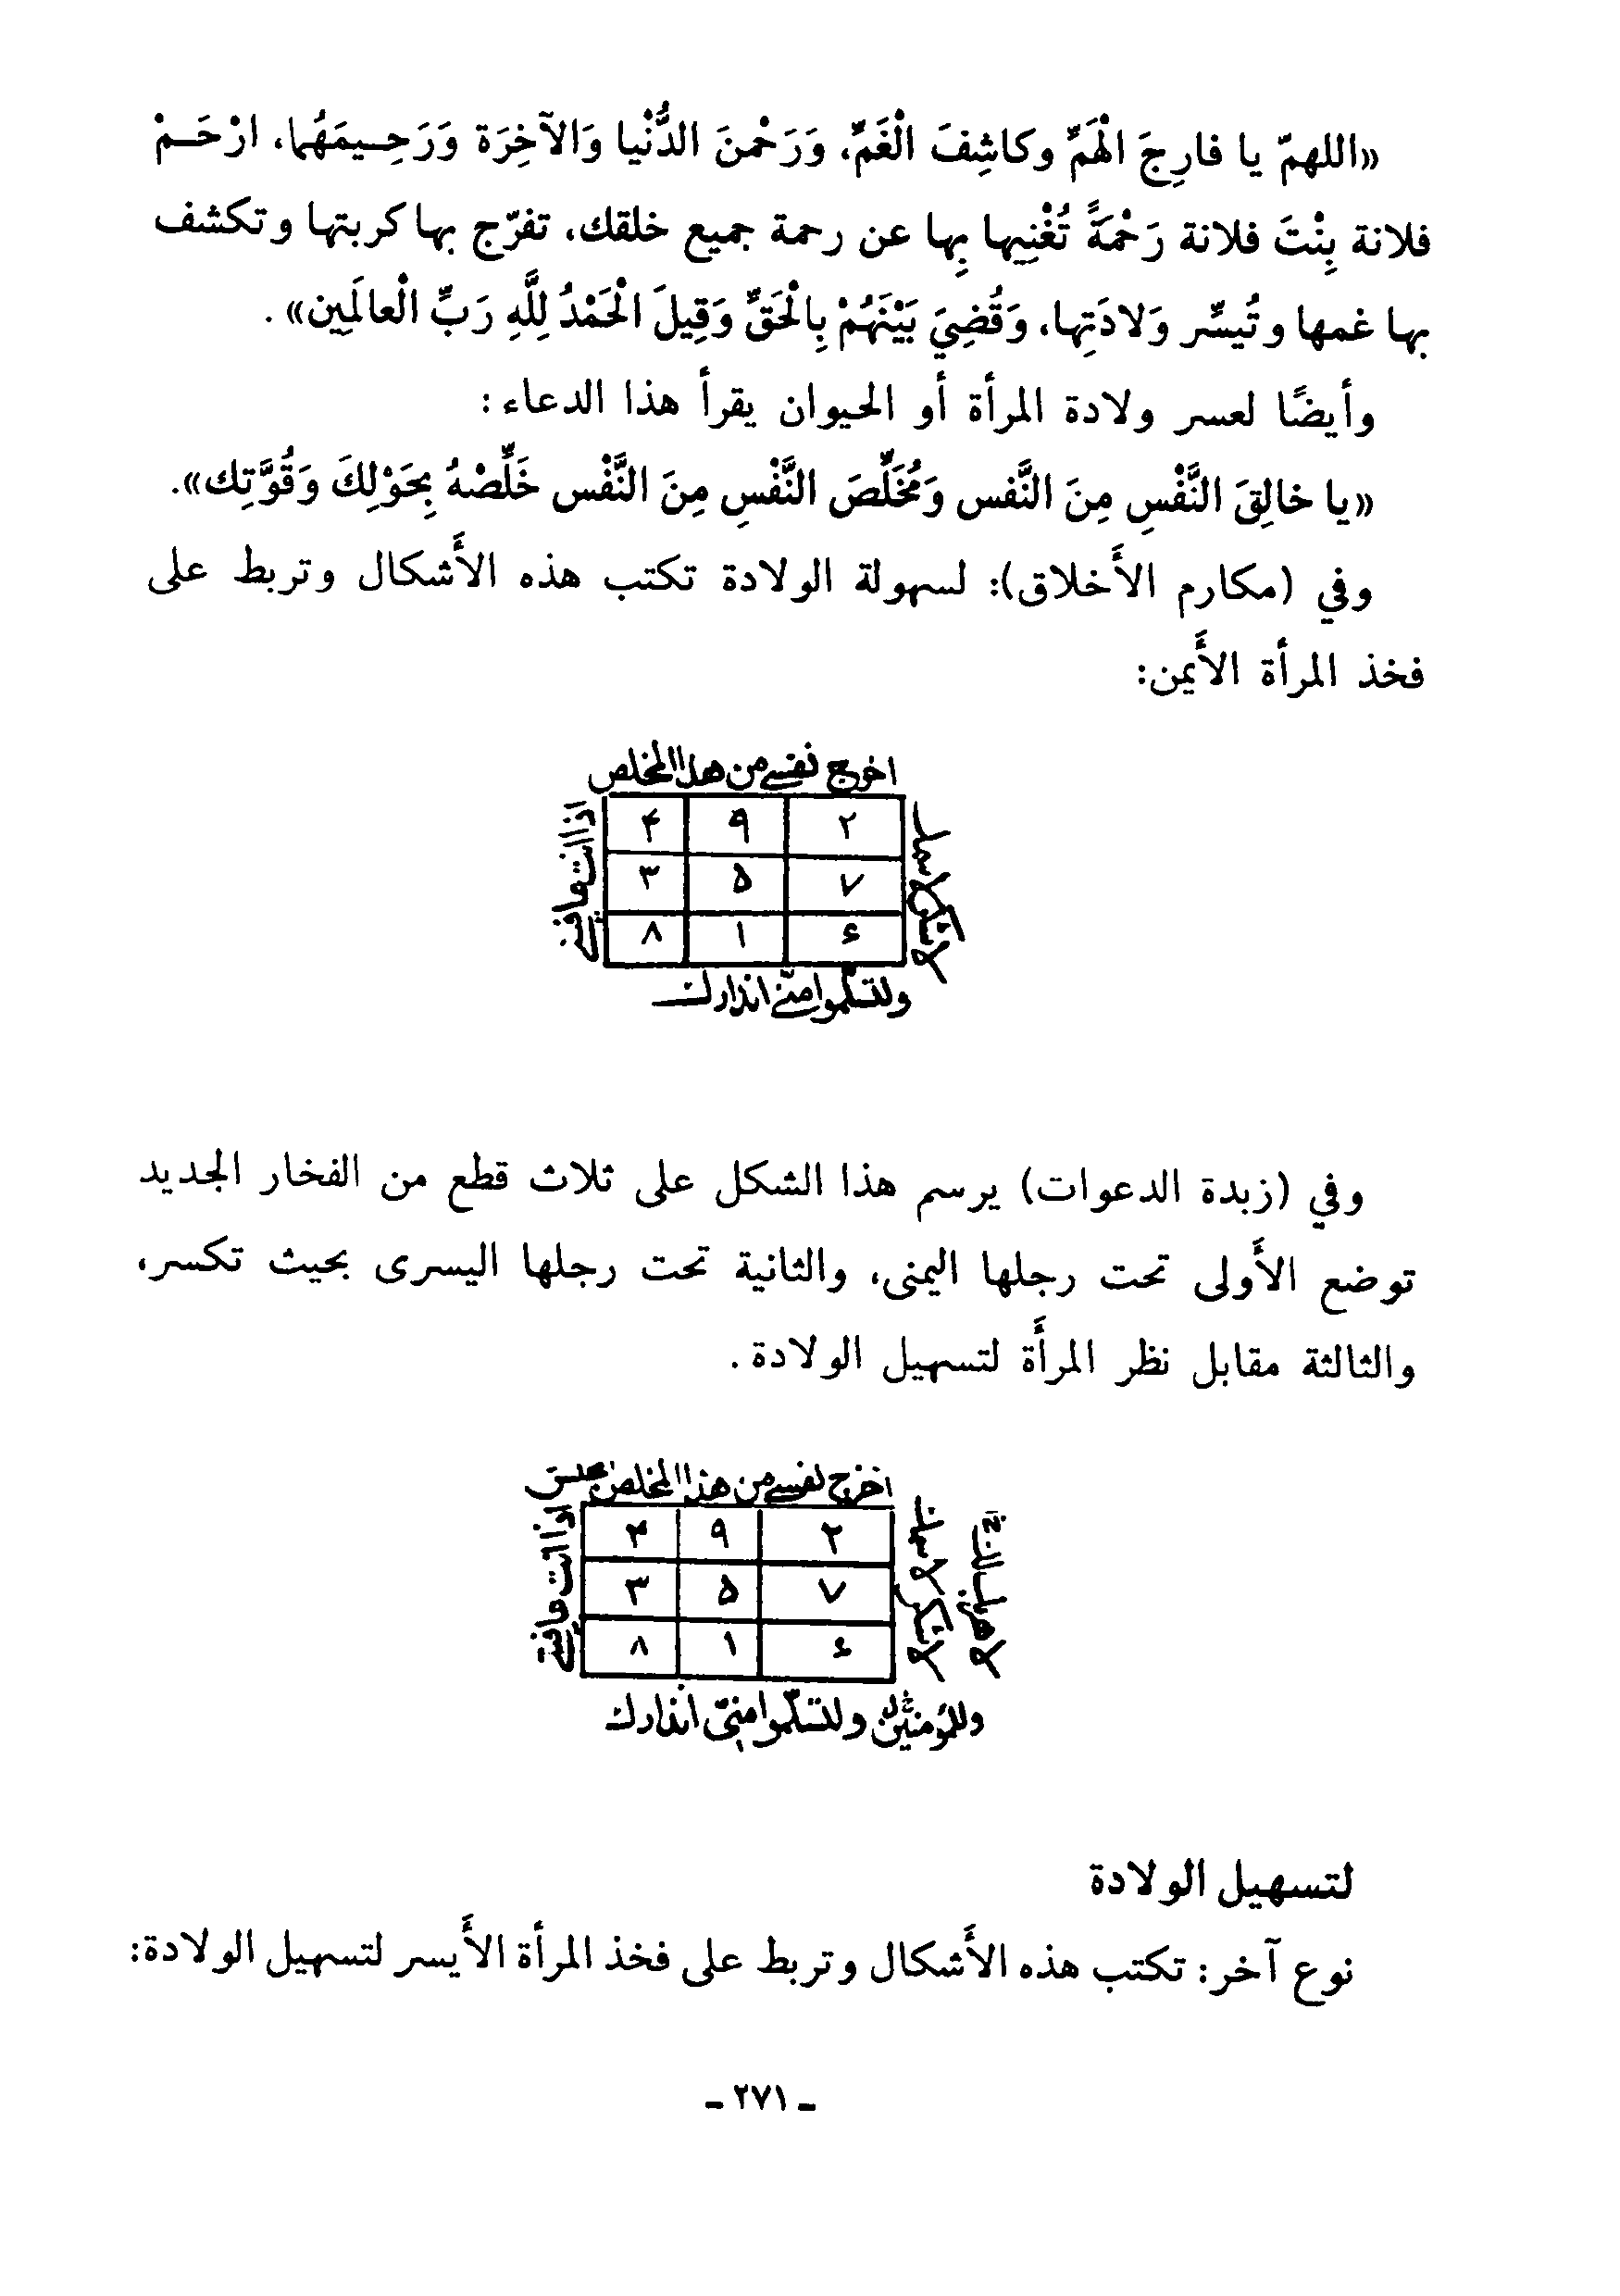 «اللهمّ يا فارِجَ الْهَمِّ وكاشِفَ الْغَمِّ، وَرَحْمنَ الدُّنْيا وَالآخِرَة وَرَحِـيمَهُما، ارْحَـمْ
فلانة بِنْتَ فلانة رَحْمَةً تُغْنِيها بِها عن رحمة جميع خلقك، تفرّج بها كربتها وتكشف
بها غمها وتُيسِّر وَلادَتِها، وَقُضِيَ بَيْنَهُمْ بِالْحَقِّ وَقِيلَ الْحَمْدُ لِلَّهِ رَبِّ الْعالَمِين».
وأيضًا لعسر ولادة المرأة أو الحيوان يقرأ هذا الدعاء:
«يا خالِقَ النَّفْسِ مِنَ النَّفس وَمُخَلِّصَ النَّفْسِ مِنَ النَّفْس خَلِّصْهُ بِحَوْلِكَ وَقُوَّتِك».
وفي (مكارم الأَخلاق): لسهولة الولادة تكتب هذه الأَشكال وتربط على
فخذ المرأة الأَيمن:
اخرج نفسي من هذا المخلص
۴ ٩ ٢
٣ ۵ ٧
٨ ١ ۶
وفي (زبدة الدعوات) يرسم هذا الشكل على ثلاث قطع من الفخار الجديد
توضع الأَولى تحت رجلها اليمنى، والثانية تحت رجلها اليسرى بحيث تكسر،
والثالثة مقابل نظر المرأَة لتسهيل الولادة.
اخرج نفسي من هذا المخلص
۴ ٩ ٢
٣ ۵ ٧
٨ ١ ۶
لتسهيل الولادة
نوع آخر: تكتب هذه الأَشكال وتربط على فخذ المرأة الأَيسر لتسهيل الولادة:
ـ ٢٧١ ـ